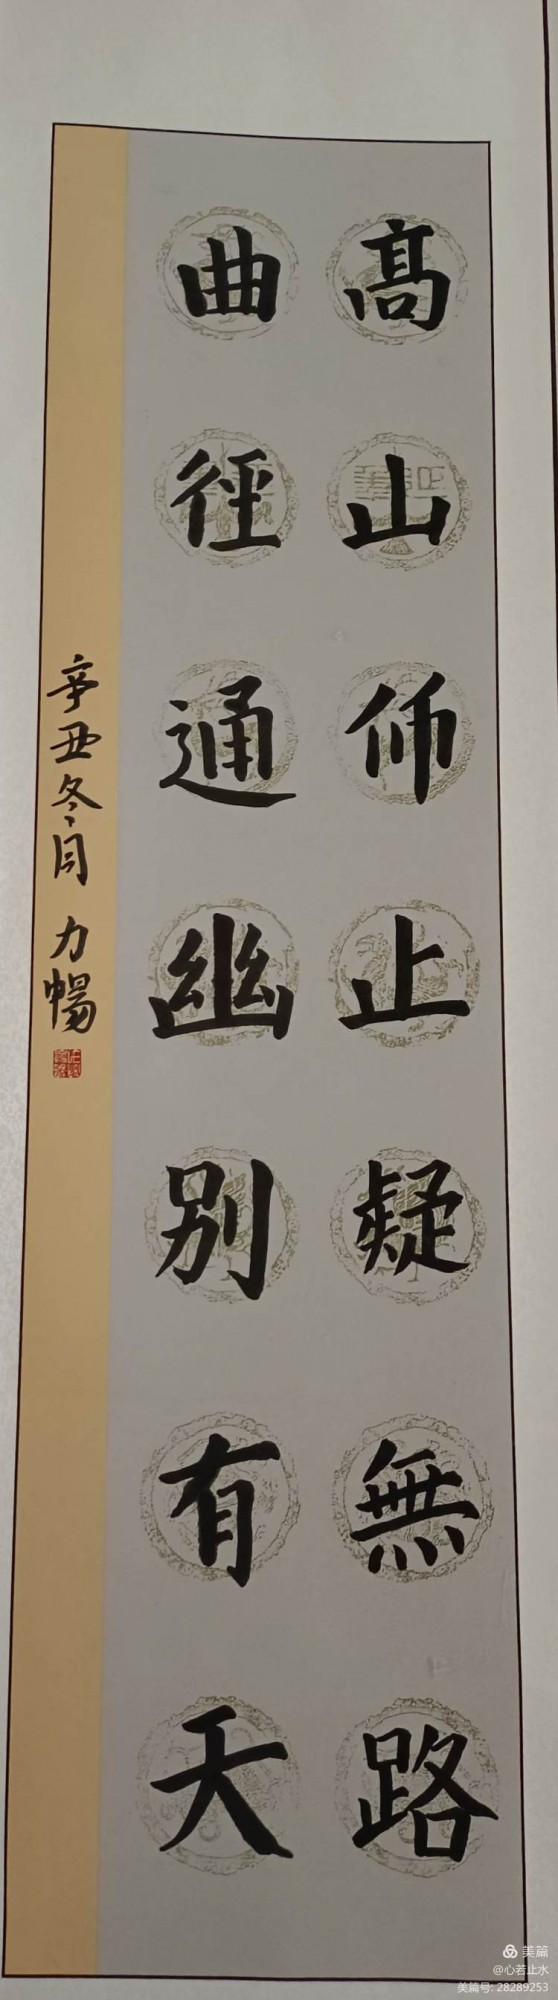 高山仰止疑無路
曲徑通幽别有天
辛丑冬月 力暢
美篇
@心若止水
美篇号: 28289253